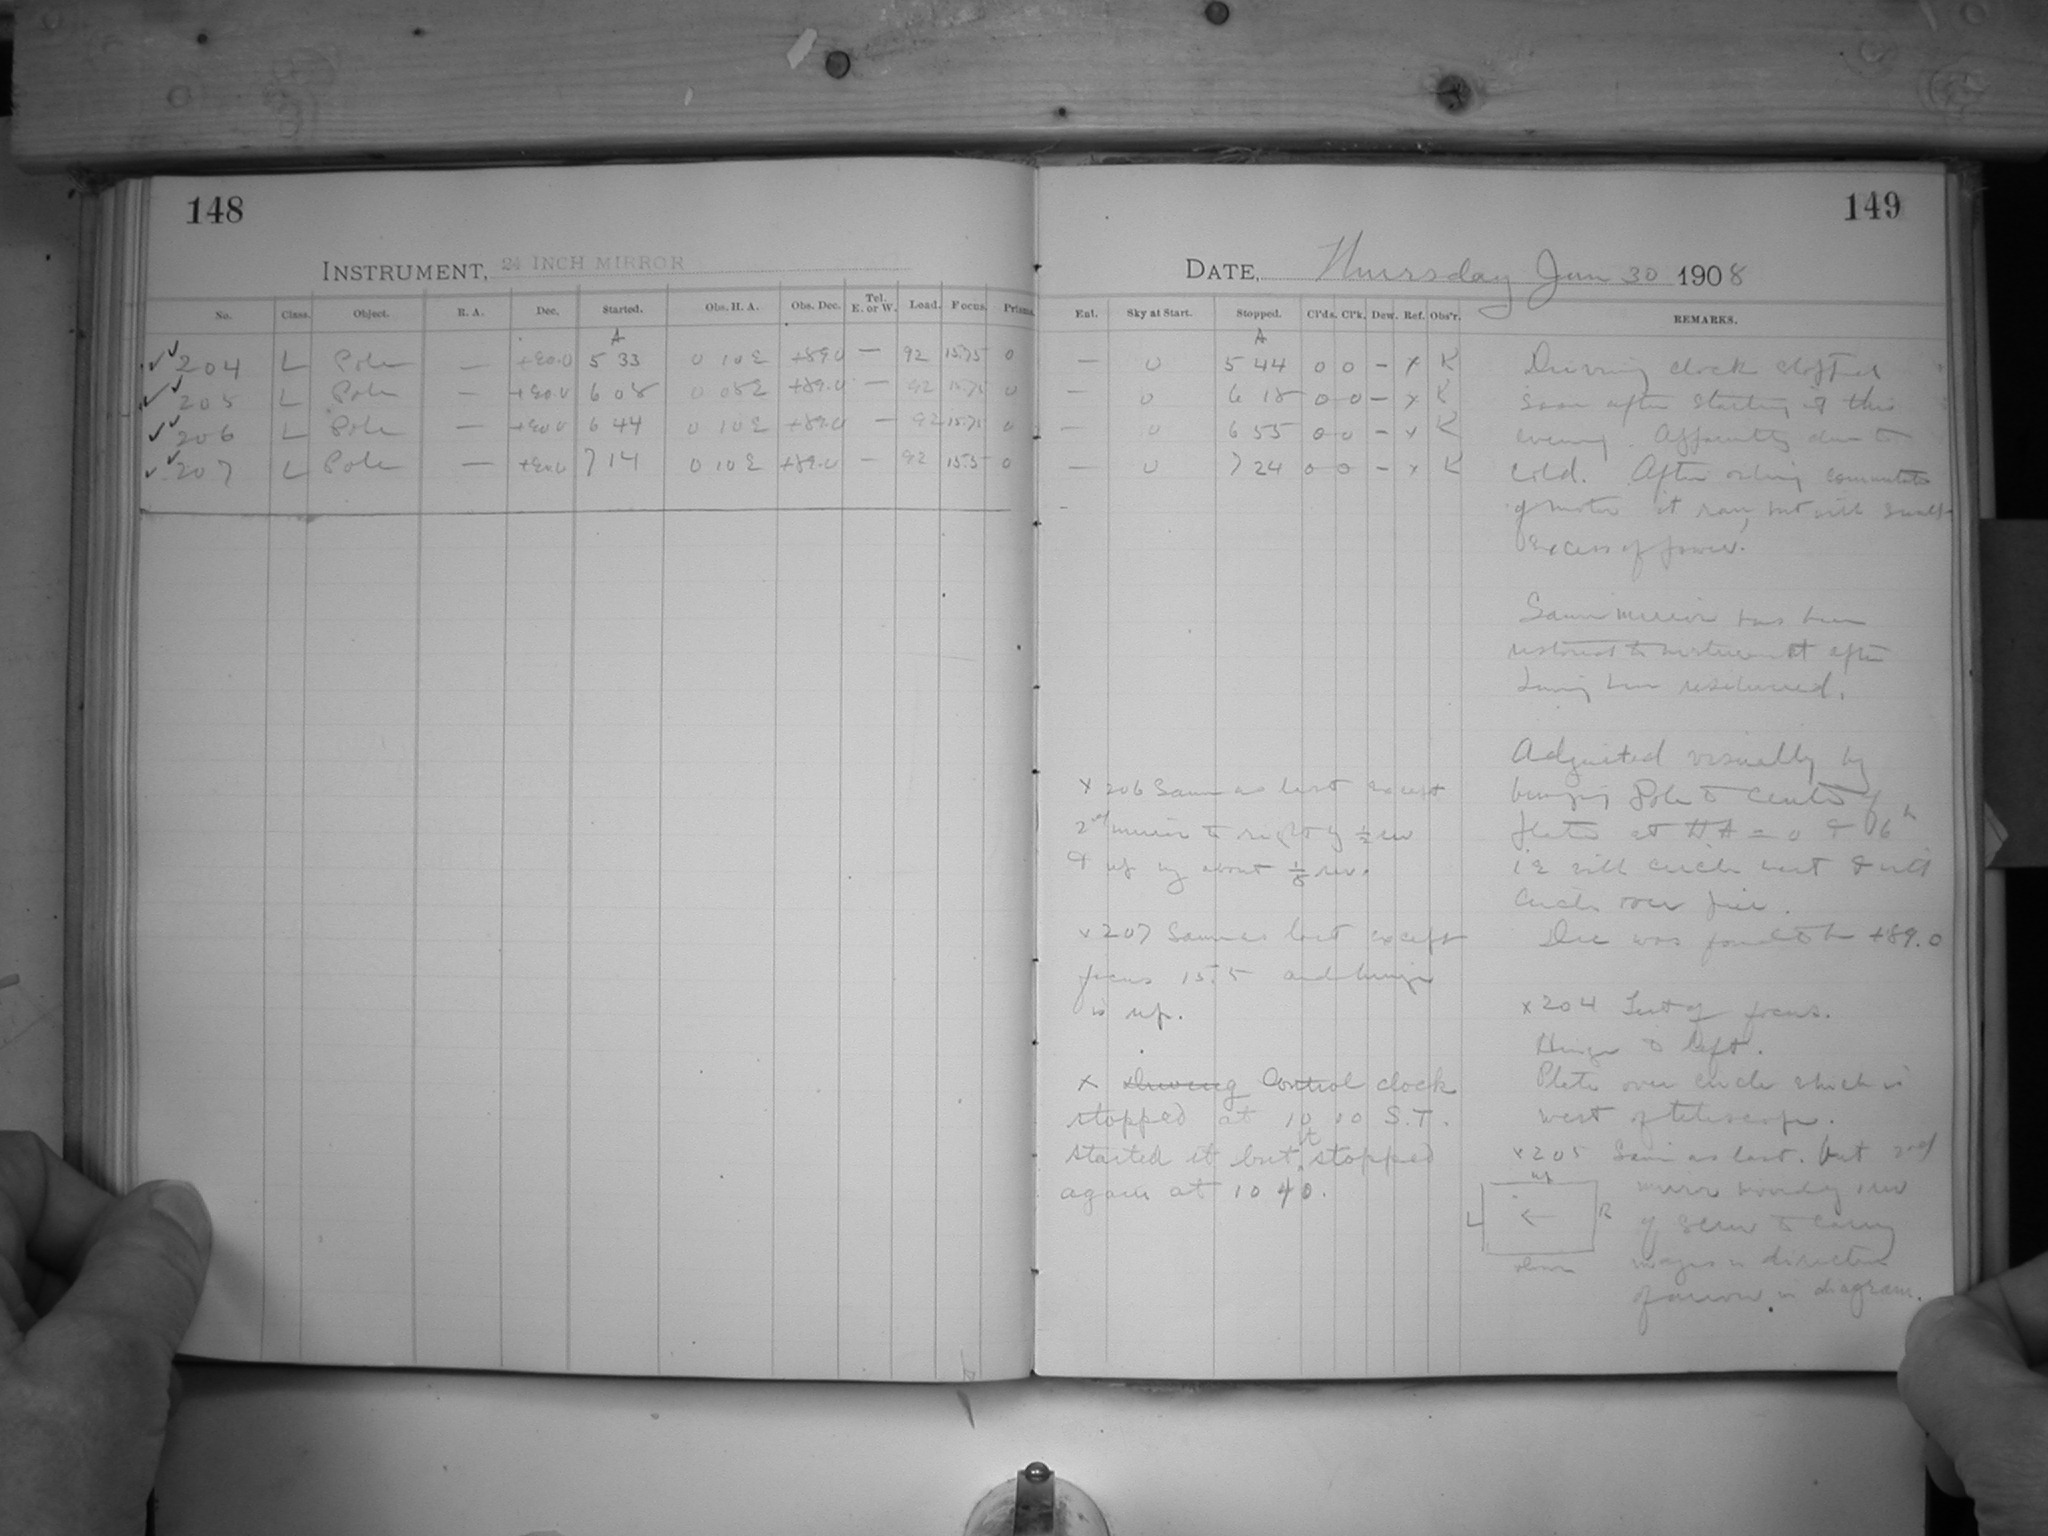 148
INSTRUMENT, 24 INCH MIRROR
No. Class. Object. R. A. Dec. Started. Obs. H. A. Obs. Dec. Tel. E. or W. Load. Focus. Prisms.
A
204 L Pole — +90.0 5 33 0 10 E +89.0 — 92 15.75 0
205 L Pole — +90.0 6 08 0 08 E +89.0 — 92 15.75 0
206 L Pole — +90.0 6 44 0 10 E +89.0 — 92 15.75 0
207 L Pole — +90.0 7 14 0 10 E +89.0 — 92 15.5 0
149
DATE, Thursday Jan 30 1908
Ent. Sky at Start. Stopped. Cl'ds. Cl'k. Dew. Ref. Obs'r. REMARKS.
A
— 0 5 44 0 0 – x K
— 0 6 18 0 0 – x K
— 0 6 55 0 0 – x K
— 0 7 24 0 0 – x K
Driving clock stopped
soon after starting it this
evening. Apparently due to
cold. After oiling commutator
of motor it ran, but with small
excess of power.
Same mirror has been
restored to instrument after
having been resilvered.
Adjusted visually by
bringing Pole to Center of
plate at HA = 0 & 6h
i e with circle west & with
circle over pier.
Dec was found to be +89.0
x 204 Test of focus.
Hinge to left.
Plate over circle which is
west of telescope.
x 205 Same as last. but 2nd
mirror moved by 1 rev
of screw to carry
images in direction
of arrow in diagram.
up
L ← R
down
x 206 Same as last except
2nd mirror to right by 1/2 rev
& up by about 1/8 rev.
x 207 Same as last except
focus 15.5 and hinge
is up.
x Driving Control clock
stopped at 10 10 S.T.
Started it but it stopped
again at 10 40.